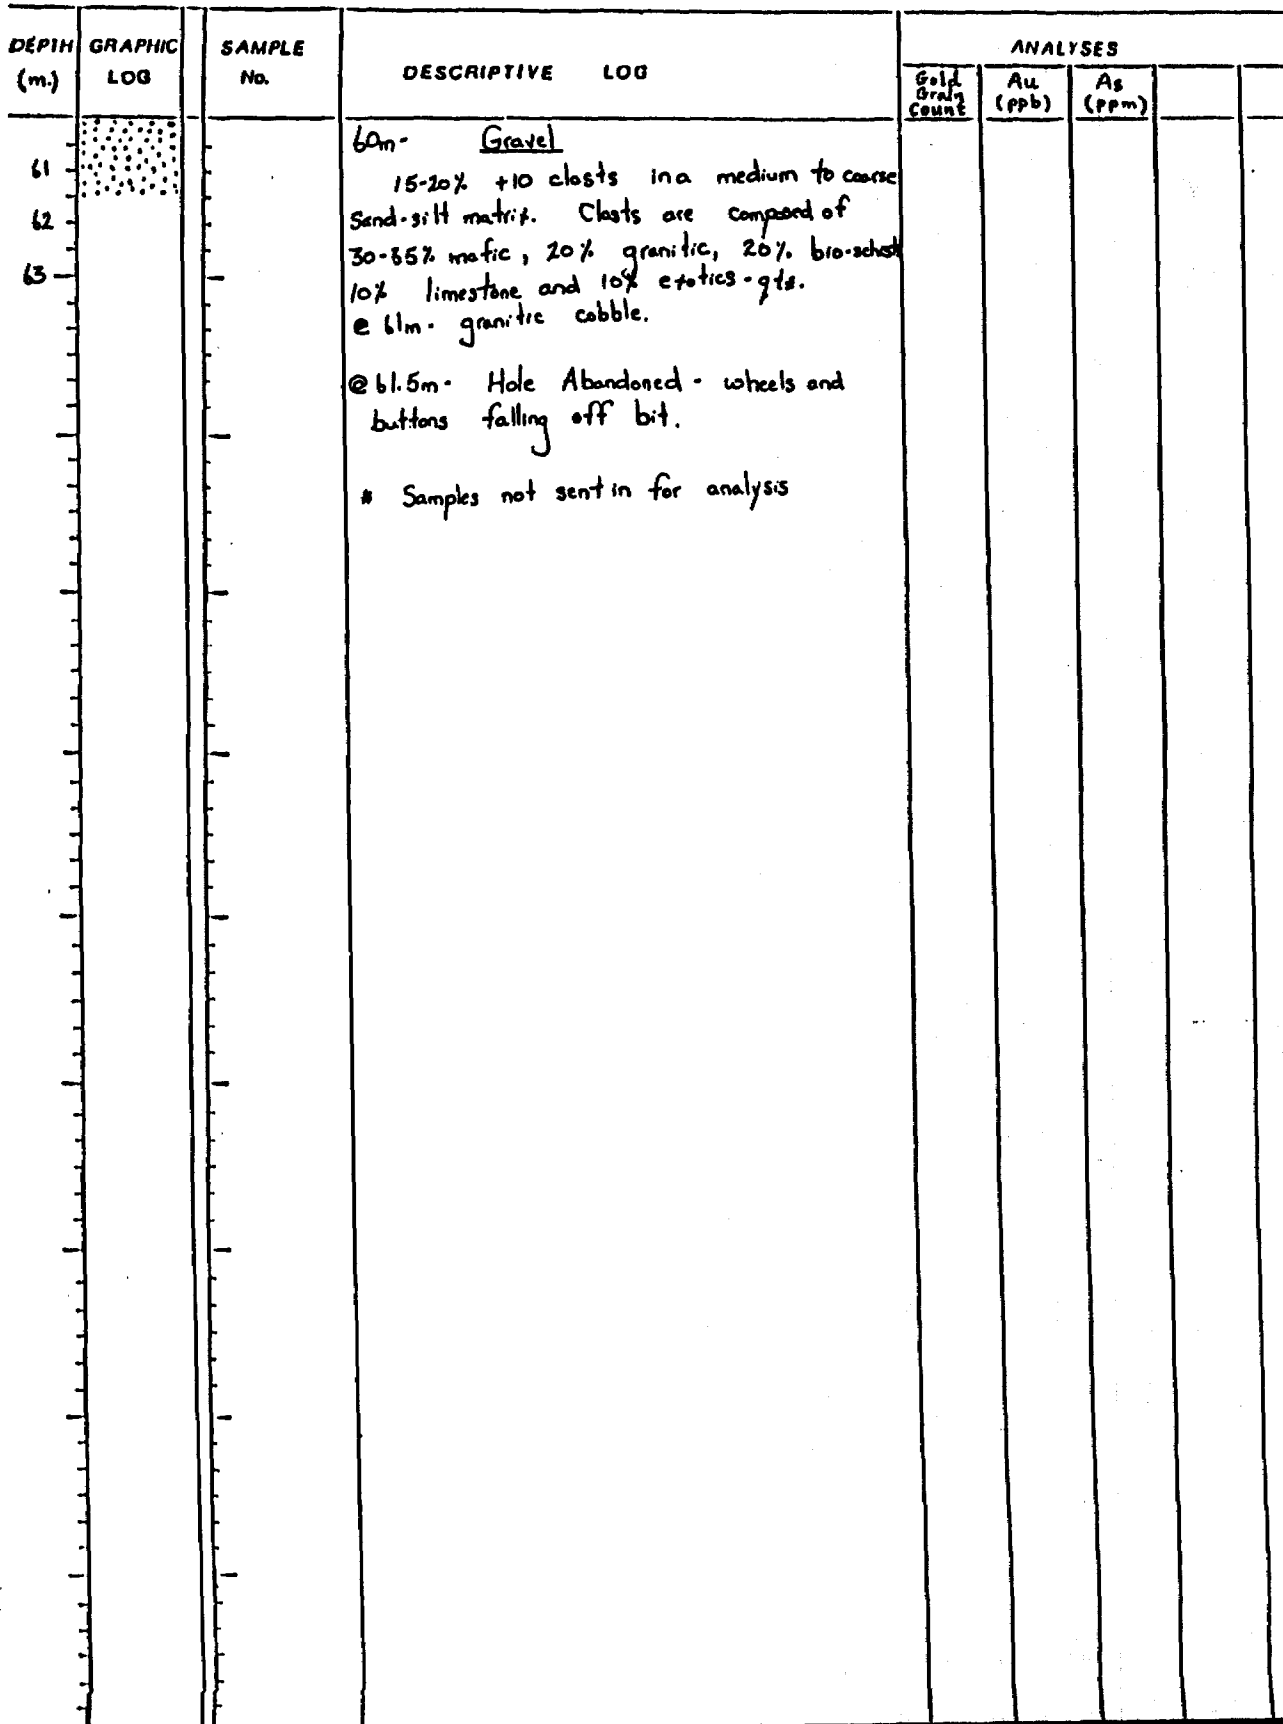 DEPTH GRAPHIC SAMPLE DESCRIPTIVE LOG ANALYSES
(m.) LOG No. Gold Grain Count Au (ppb) As (ppm)
60m- Gravel
61 15-20% +10 clasts in a medium to coarse
62 Sand-silt matrix. Clasts are composed of
30-35% mafic, 20% granitic, 20% bio-schist
63 10% limestone and 10% exotics-qtz.
@ 61m- granitic cobble.
@ 61.5m- Hole Abandoned - wheels and
buttons falling off bit.
* Samples not sent in for analysis